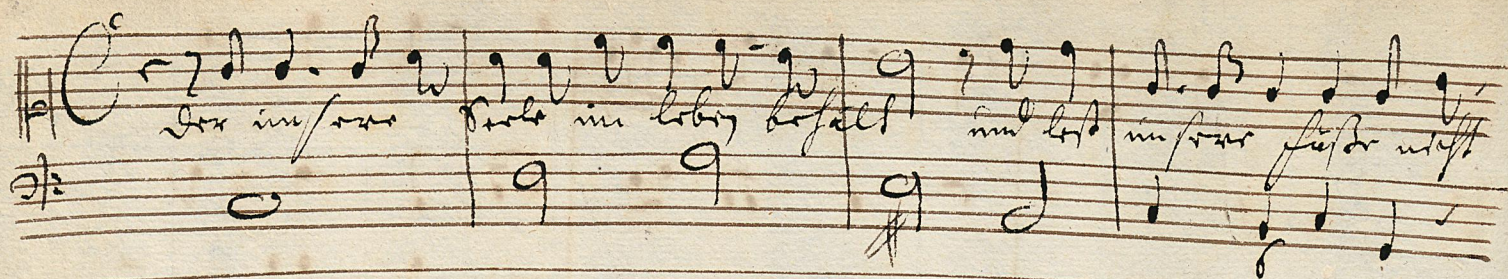 der unsere Seele im leben behält und lest unsere füße nicht
6